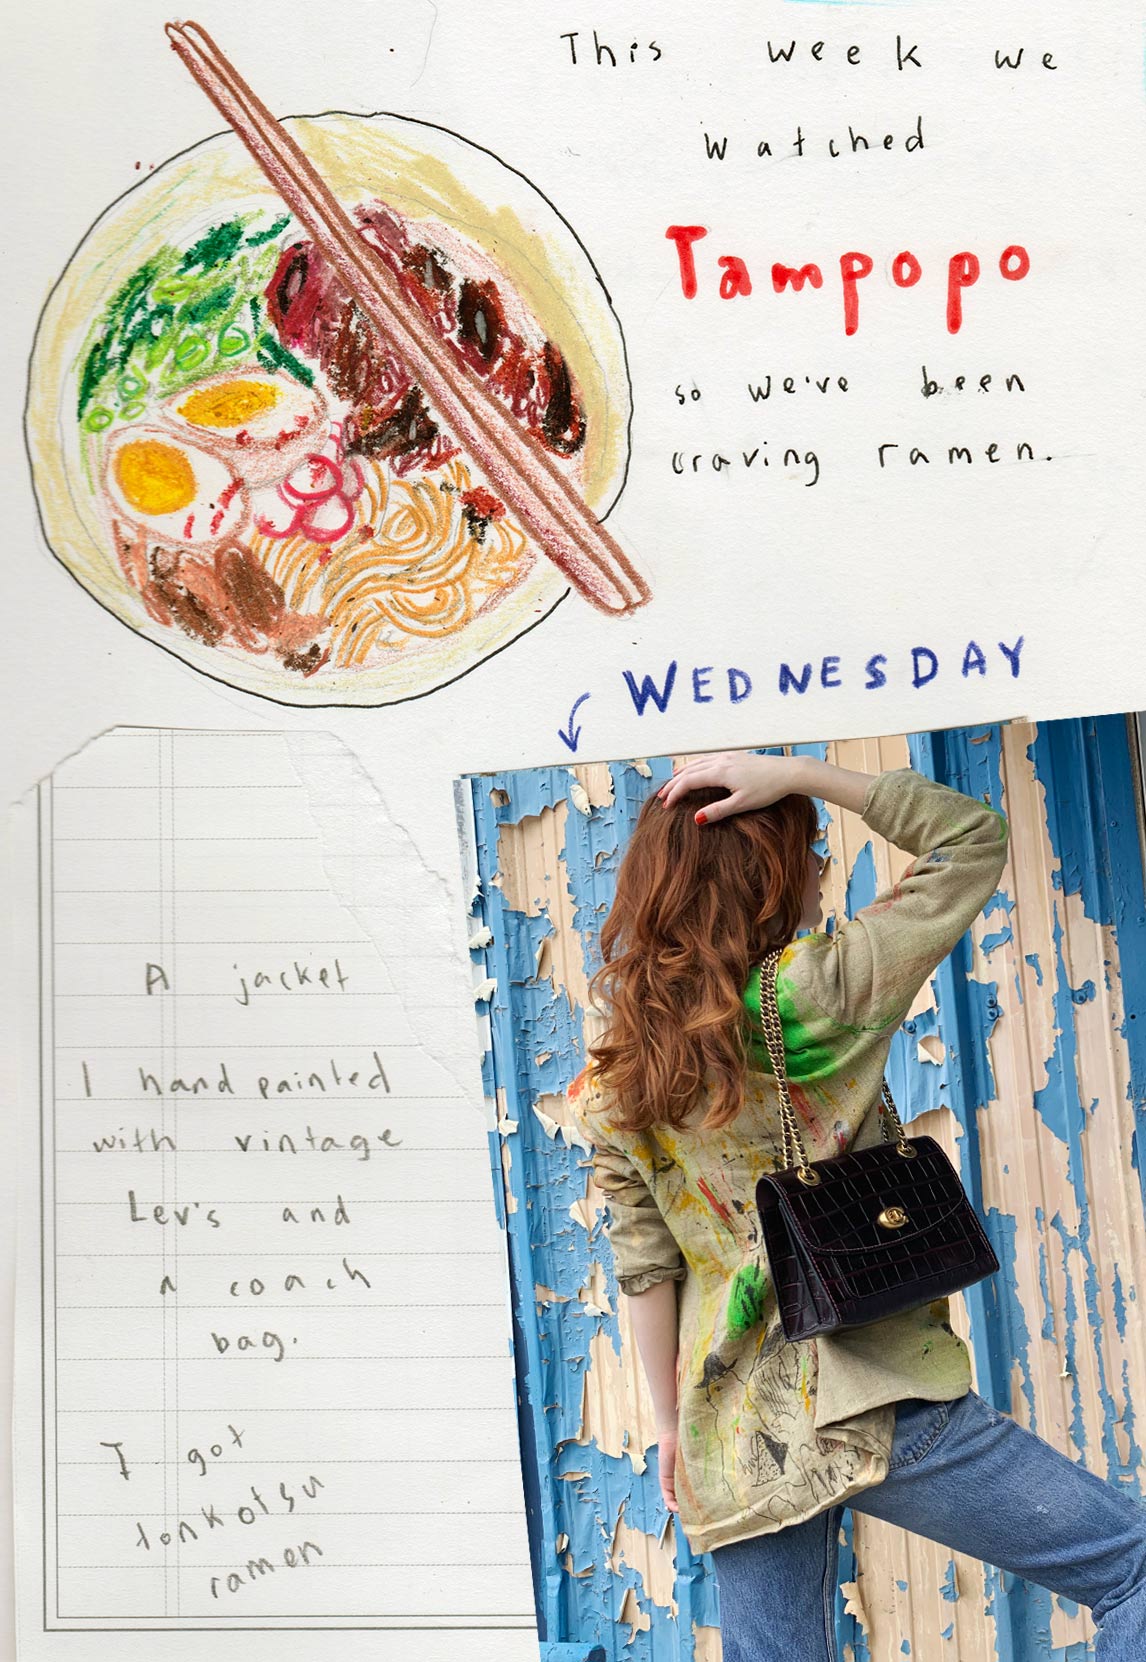 This week we
watched
Tampopo
so we've been
craving ramen.
WEDNESDAY
A jacket
I hand painted
with vintage
Lev's and
a coach
bag.
I got
tonkotsu
ramen